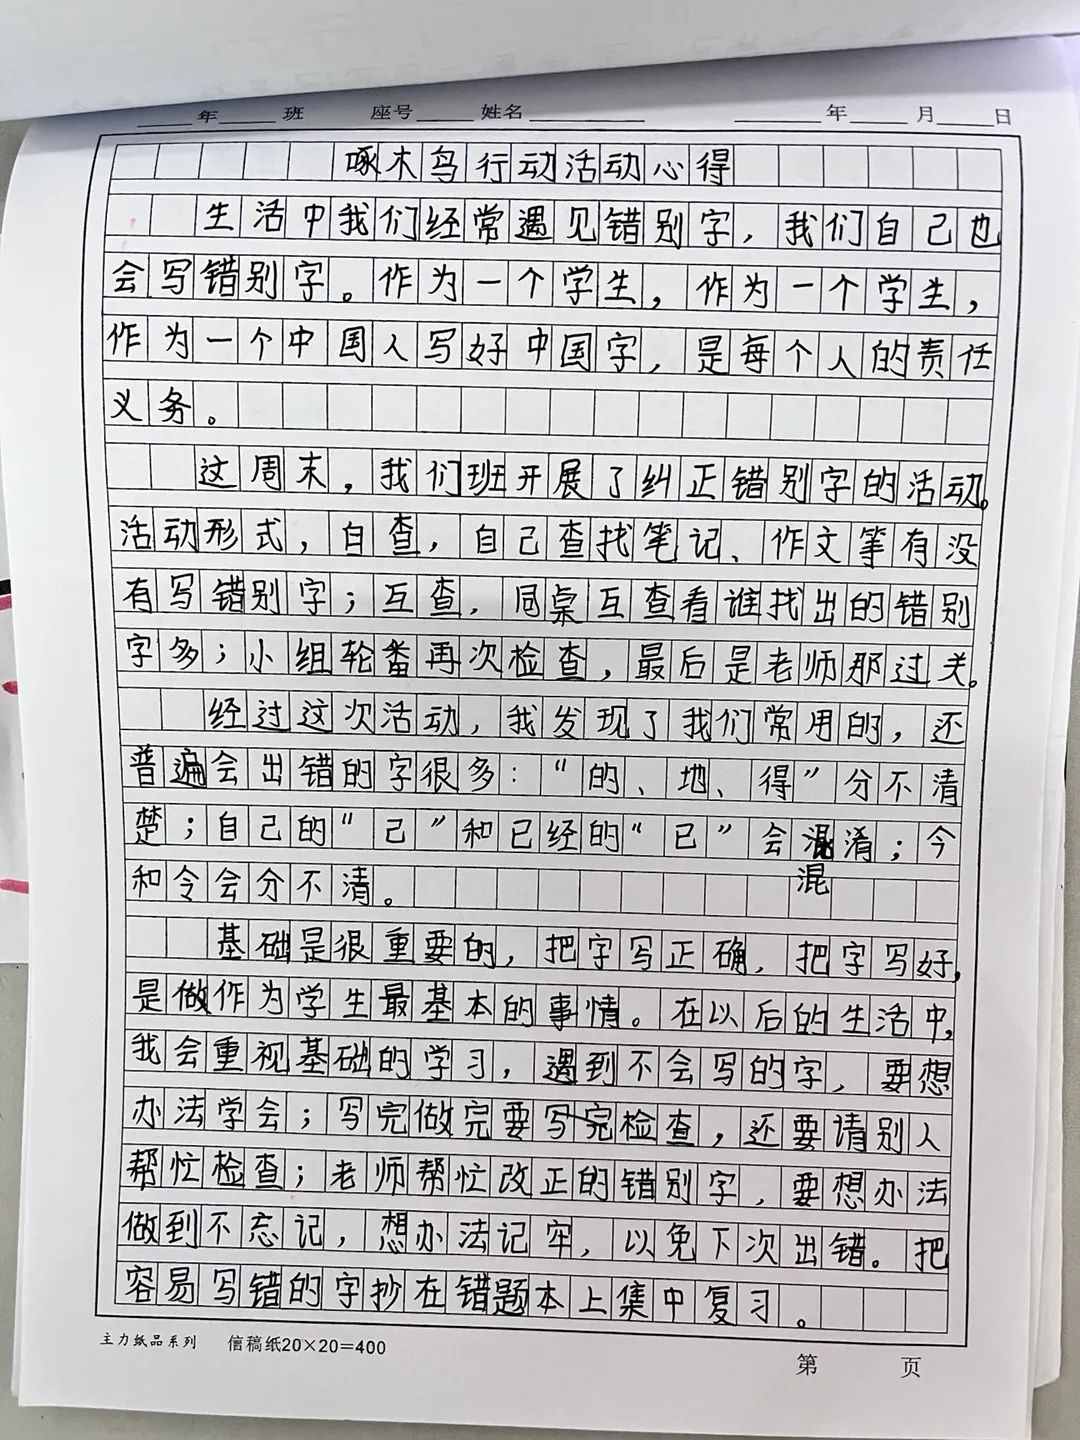 年 班 座号 姓名 年 月 日
啄木鸟行动活动心得
生活中我们经常遇见错别字，我们自己也
会写错别字。作为一个学生，作为一个学生，
作为一个中国人写好中国字，是每个人的责任
义务。
这周末，我们班开展了纠正错别字的活动。
活动形式，自查，自己查找笔记、作文等有没
有写错别字；互查，同桌互查看谁找出的错别
字多；小组轮番再次检查，最后是老师那过关。
经过这次活动，我发现了我们常用的，还
普遍会出错的字很多：“的、地、得”分不清
楚；自己的“己”和已经的“已”会混淆；今
混
和令会分不清。
基础是很重要的，把字写正确，把字写好，
是做作为学生最基本的事情。在以后的生活中，
我会重视基础的学习，遇到不会写的字，要想
办法学会；写完做完要写完检查，还要请别人
帮忙检查；老师帮忙改正的错别字，要想办法
做到不忘记，想办法记牢，以免下次出错。把
容易写错的字抄在错题本上集中复习。
主力纸品系列 信稿纸20×20=400
第 页